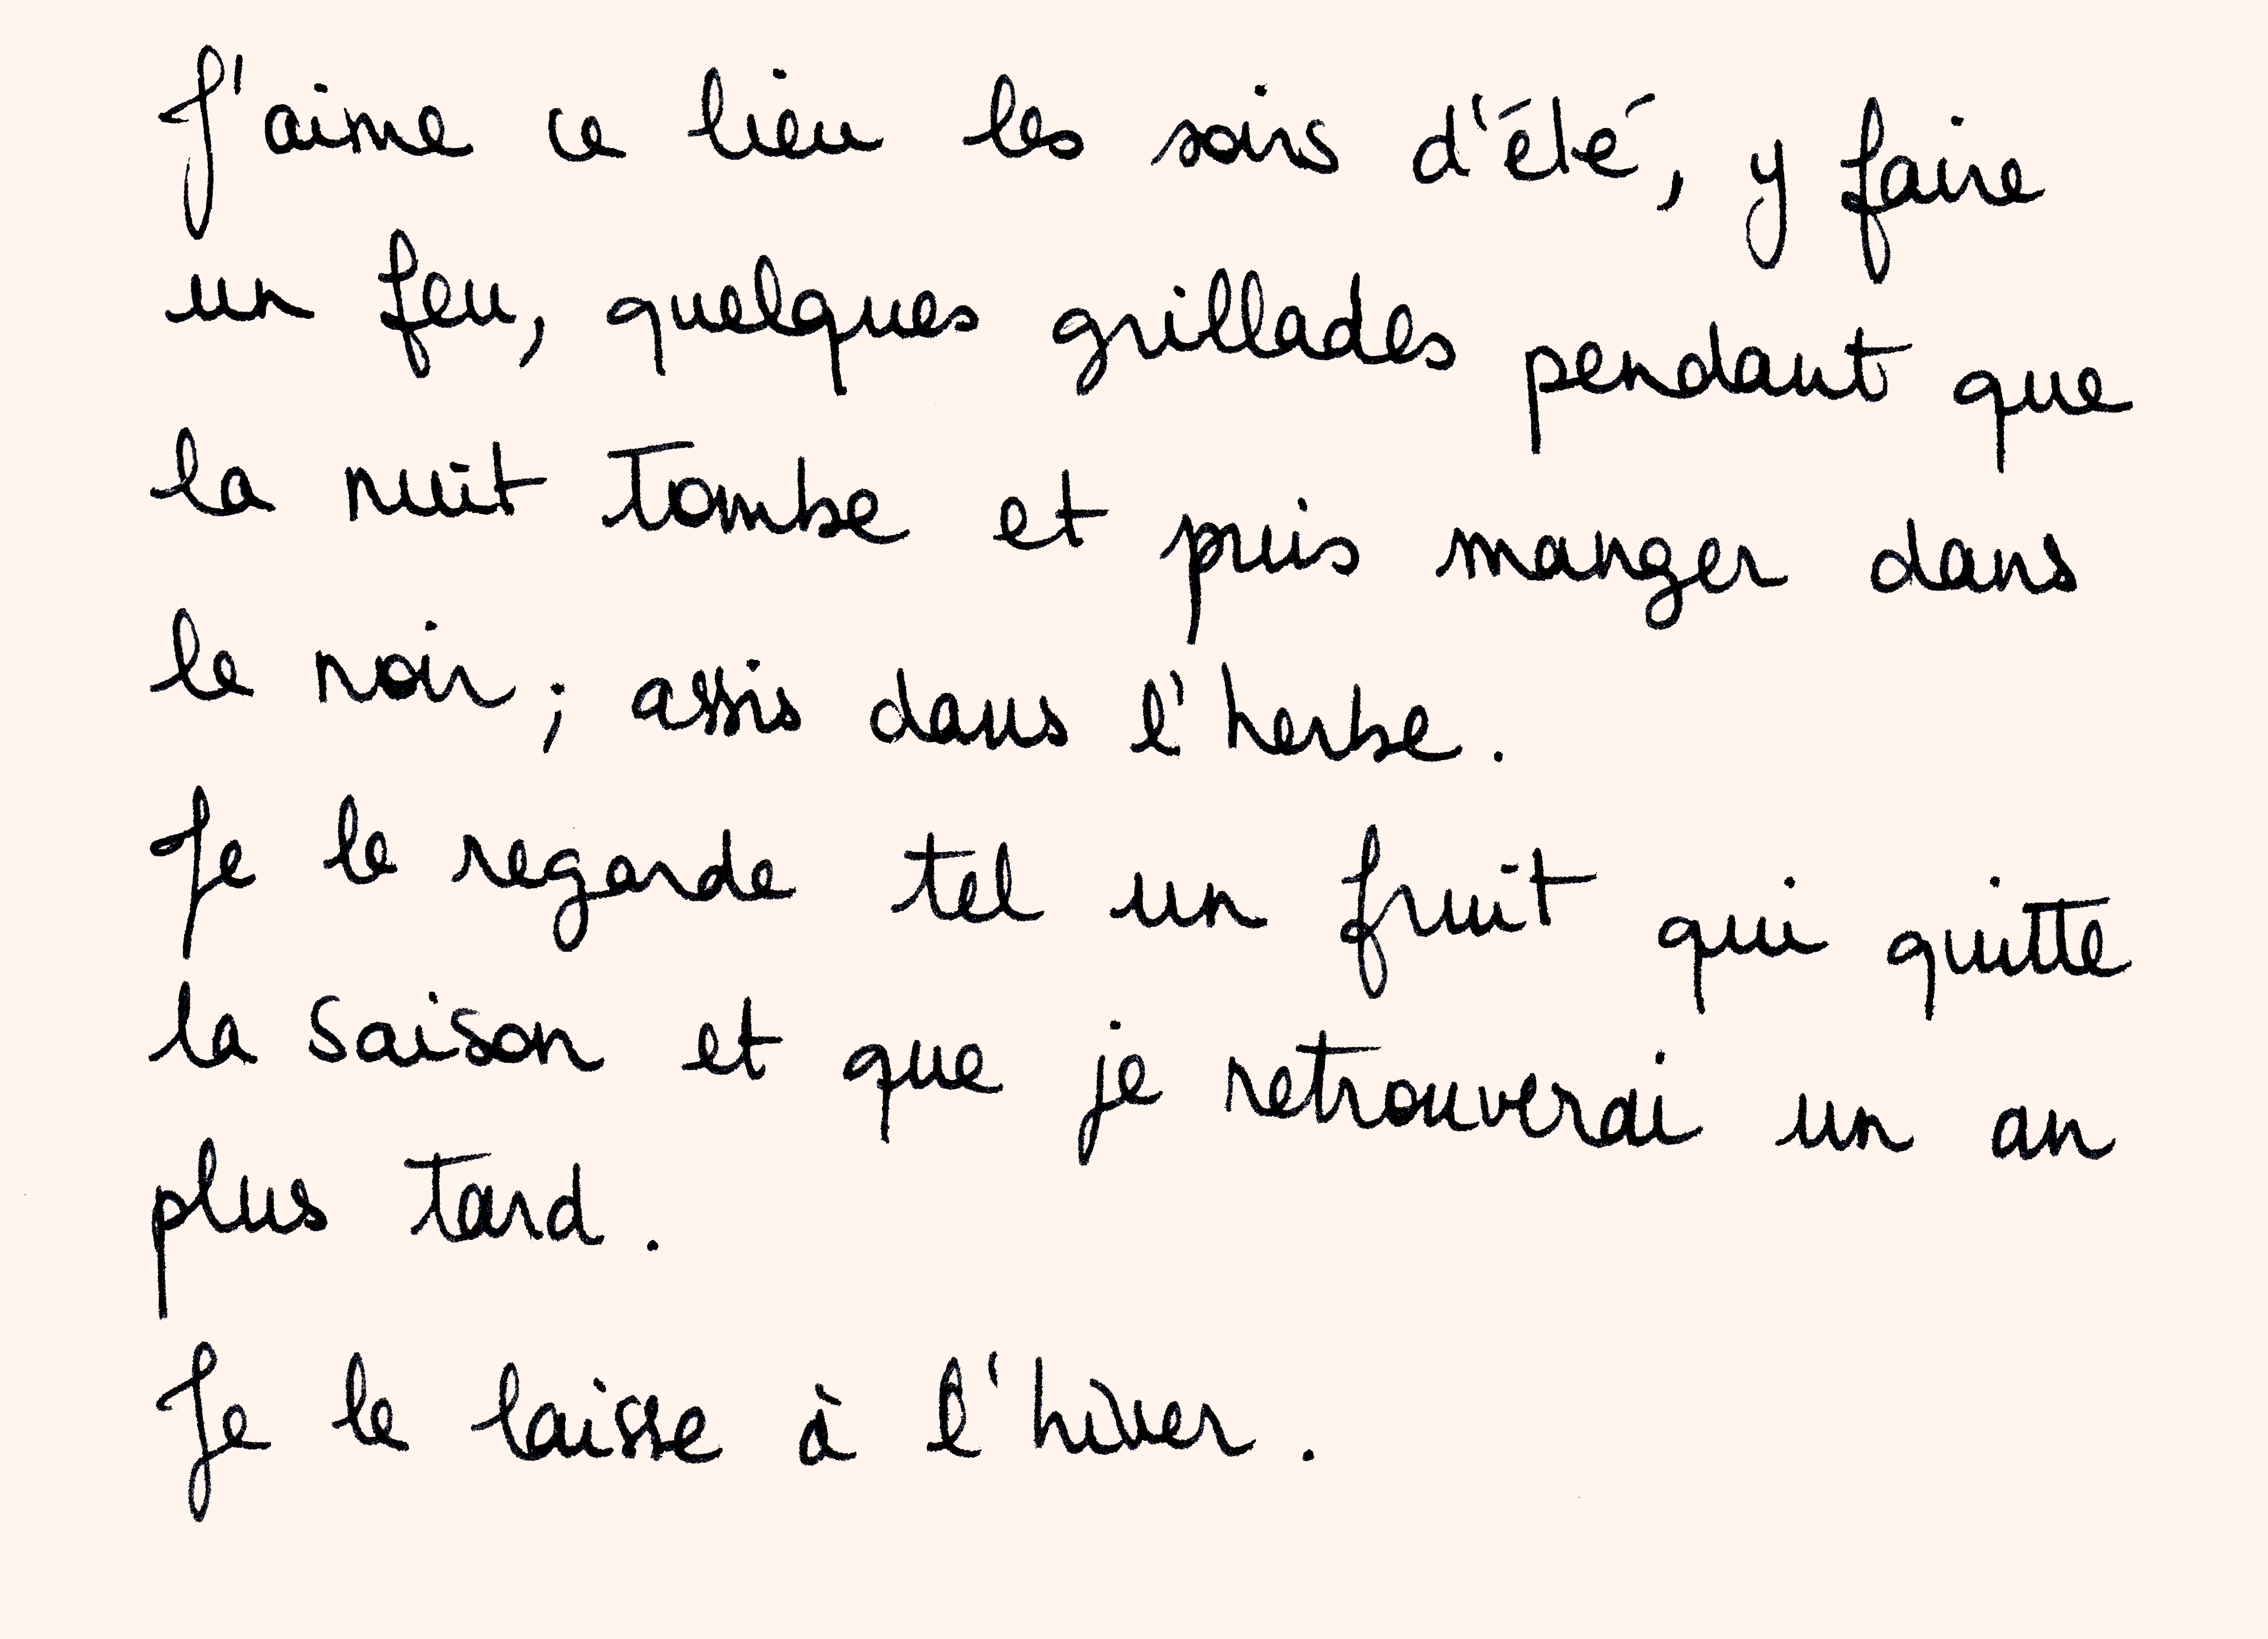 J'aime ce lieu les soirs d'été, y faire
un feu, quelques grillades pendant que
la nuit tombe et puis manger dans
le noir ; assis dans l'herbe.
Je le regarde tel un fruit qui quitte
la saison et que je retrouverai un an
plus tard.
Je le laisse à l'hiver.